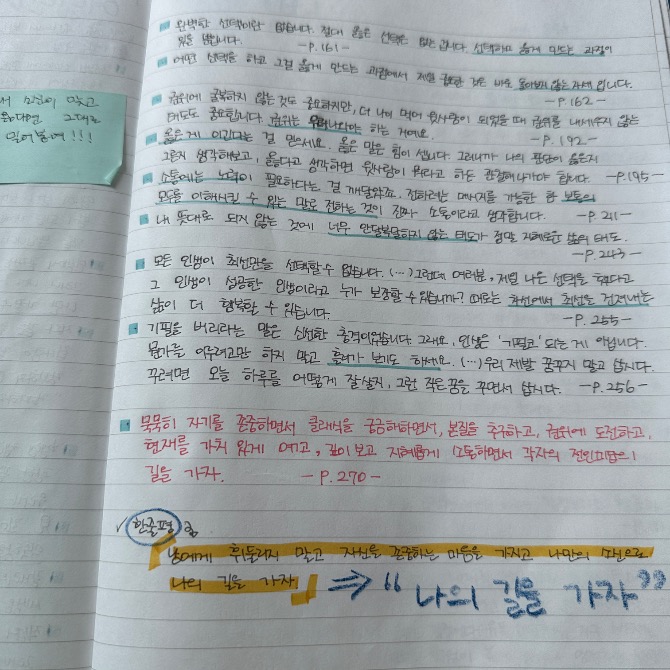 완벽한 선택이란 없습니다. 절대 옳은 선택은 없는 겁니다. 선택하고 옳게 만드는 과정이
있을 뿐입니다. -P.161-
어떤 선택을 하고 그걸 옳게 만드는 과정에서 제일 중요한 것은 바로 돌아보지 않는 자세입니다.
-P.162-
권위에 굴복하지 않는 것도 중요하지만, 더 나이 먹어 윗사람이 되었을 때 권위를 내세우지 않는
태도도 중요합니다. 권위는 우러나와야 하는 거예요. -P.192-
옳은 게 이긴다는 걸 믿으세요. 옳은 말은 힘이 셉니다. 그러니까 나의 판단이 옳은지
그렇지 생각해보고, 옳다고 생각하면 윗사람이 뭐라고 하든 관철해나가야 합니다. -P.195-
소통에는 노력이 필요하다는 걸 깨달았죠. 전하려는 메시지를 가능한 한 보통의
모두를 이해시킬 수 있는 말로 전하는 것이 진짜 소통이라고 생각합니다. -P.211-
내 뜻대로 되지 않는 것에 너무 안달복달하지 않는 태도가 정말 지혜로운 삶의 태도.
-P.243-
모든 인생이 최선만을 선택할 수 없습니다. (…) 그런데 여러분, 제일 나은 선택을 했다고
그 인생이 성공한 인생이라고 누가 보장할 수 있습니까? 때로는 차선에서 최선을 건져내는
삶이 더 행복할 수 있습니다. -P.255-
기필을 버리라는 말은 신선한 충격이었습니다. 그래요. 인생은 '기필코' 되는 게 아닙니다.
뭔가를 이루려고만 하지 말고 흘러가 보기도 하세요. (…) 우리 제발 꿈꾸지 말고 삽시다.
꾸려면 오늘 하루를 어떻게 잘 살지, 그런 작은 꿈을 꾸면서 삽시다. -P.256-
묵묵히 자기를 존중하면서 클래식을 궁금해하면서, 본질을 추구하고, 권위에 도전하고,
현재를 가치 있게 여기고, 깊이 보고 지혜롭게 소통하면서 각자의 전인미답의
길을 가자. -P.270-
한줄평
남에게 휘둘리지 말고 자신을 존중하는 마음을 가지고 나만의 또신으로
나의 길을 가자 ⇒ “나의 길을 가자”